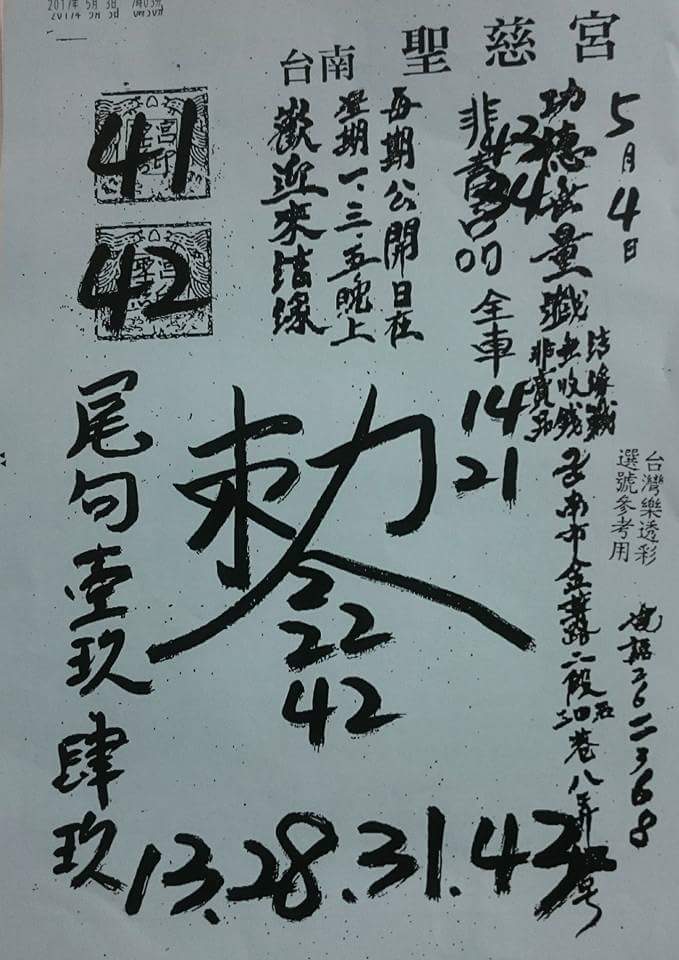 2017年 5月 3日
台南 聖慈宮
5月4日
功德無量戲
結緣戲
無收錢
非賣品
非賣品 全車
43
34
14
21
每期公開日在
星期一、三、五晚上
歡迎來結緣
41
42
台灣樂透彩
選號參考用
電話2622368
台南市金華路二段
巷八弄
號
敕令
2
22
42
尾句壹玖肆玖
13.28.31.43